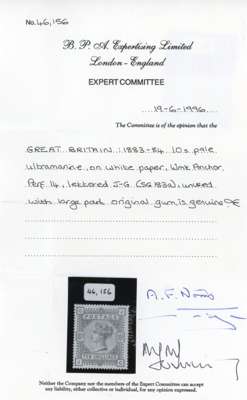 No. 46,156
B. P. A. Expertising Limited
London - England
EXPERT COMMITTEE
19-6-1996
The Committee is of the opinion that the
GREAT BRITAIN: 1883-84 10s pale
ultramarine, on white paper, Wmk Anchor,
Perf 14, lettered J-G (SG 183a), unused
with large part original gum is genuine
46,156
POSTAGE
TEN SHILLINGS
Neither the Company nor the members of the Expert Committee can accept
any liability, either collective or individual, for any opinion expressed.